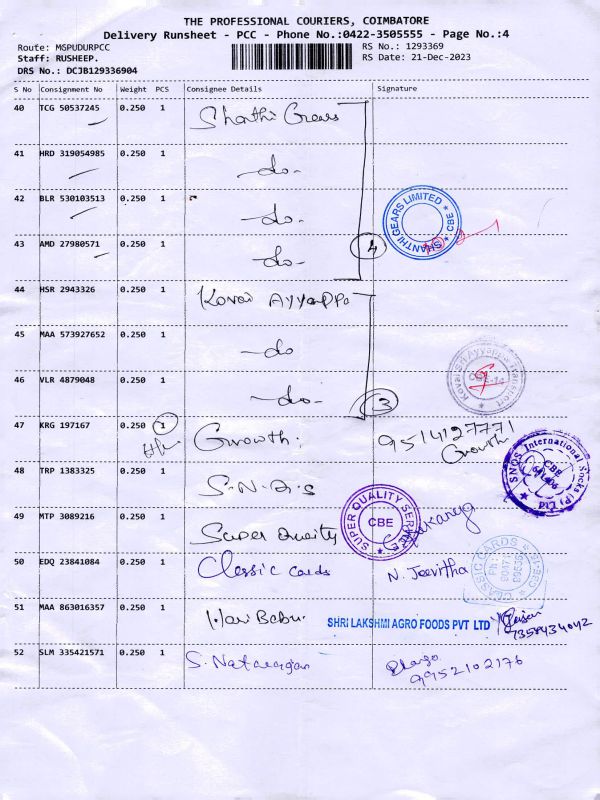 THE PROFESSIONAL COURIERS, COIMBATORE
Delivery Runsheet - PCC - Phone No.:0422-3505555 - Page No.:4
Route: MSPUDURPCC RS No.: 1293369
Staff: RUSHEEP. RS Date: 21-Dec-2023
DRS No.: DCJB129336904
S No Consignment No Weight PCS Consignee Details Signature
40 TCG 50537245 0.250 1 Shanthi Gears
41 HRD 319054985 0.250 1 -do-
42 BLR 530103513 0.250 1 -do-
SHANTHI GEARS LIMITED * CBE *
43 AMD 27980571 0.250 1 -do- 4
44 HSR 2943326 0.250 1 Kovai Ayyappa
45 MAA 573927652 0.250 1 -do
46 VLR 4879048 0.250 1 -do- 3
Kovai Sri Ayyappa Transport
47 KRG 197167 0.250 1 Growth. 9514127771
Growth
SNQS International Socks (P) Ltd CBE
48 TRP 1383325 0.250 1 S.N.Q.S
49 MTP 3089216 0.250 1 Super Quality
SUPER QUALITY SERVICE CBE
50 EDQ 23841084 0.250 1 Classic Cards N. Jeevitha
CLASSIC CARDS
51 MAA 863016357 0.250 1 Hari Babu. SHRI LAKSHMI AGRO FOODS PVT LTD
7358434042
52 SLM 335421571 0.250 1 S. Natarajan
9952102176